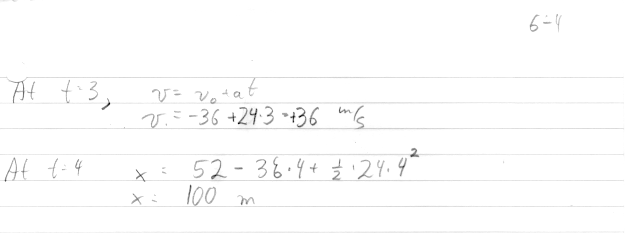 6-4
At t=3, v = v₀+at
v = -36 +24·3 = +36 m/s
At t=4 x = 52 - 36·4 + ½·24·4²
x = 100 m